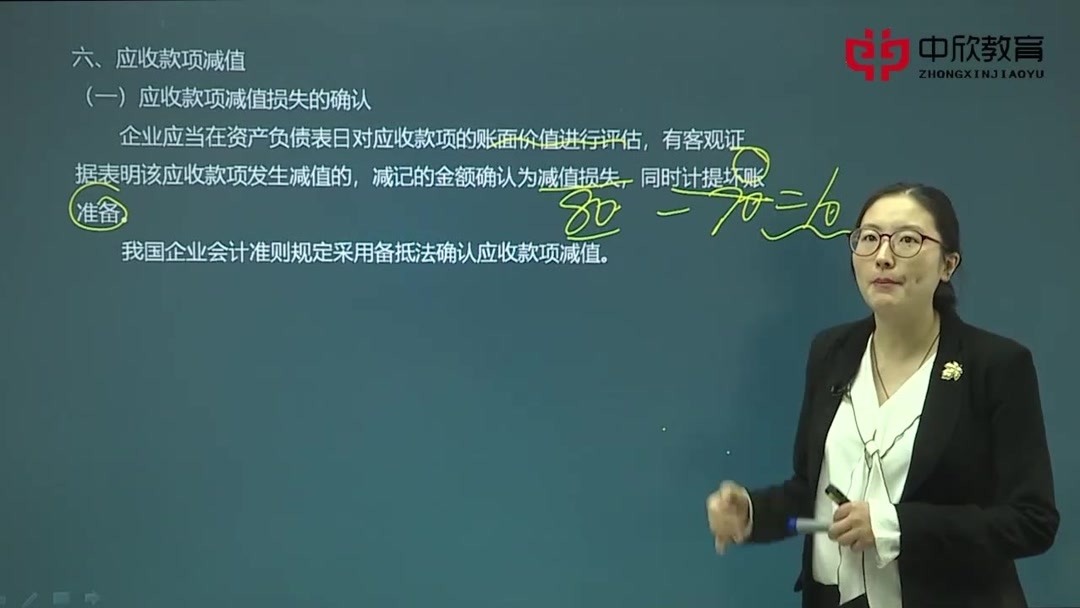 中欣教育
ZHONGXINJIAOYU
六、应收款项减值
（一）应收款项减值损失的确认
企业应当在资产负债表日对应收款项的账面价值进行评估，有客观证
据表明该应收款项发生减值的，减记的金额确认为减值损失，同时计提坏账
准备。
我国企业会计准则规定采用备抵法确认应收款项减值。